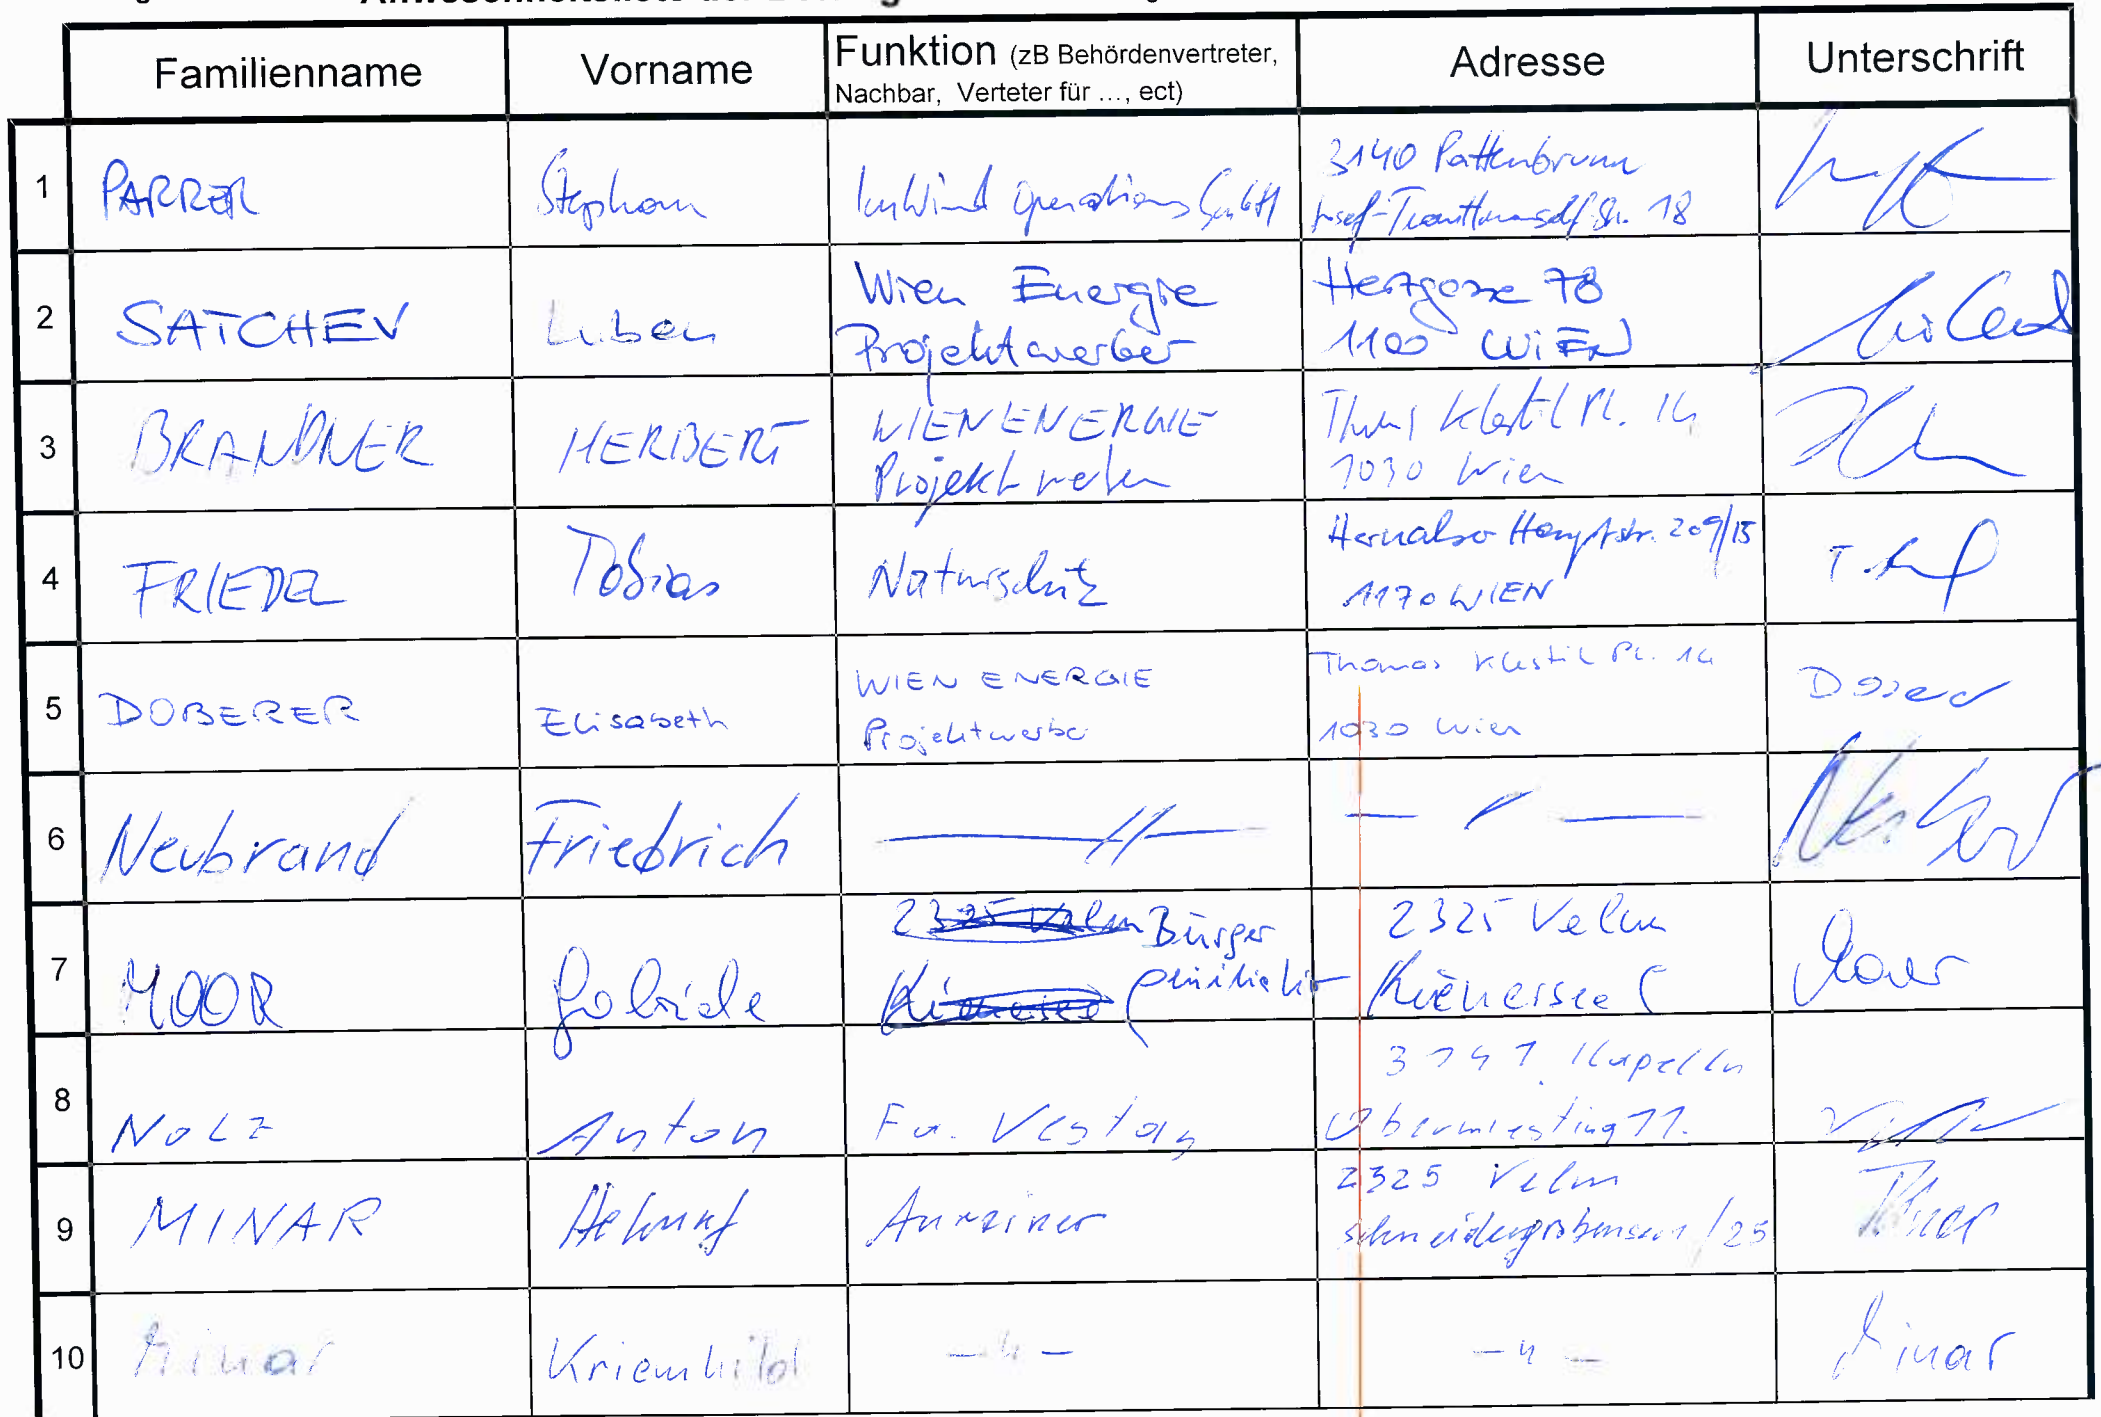 Familienname Vorname Funktion (zB Behördenvertreter, Nachbar, Verteter für ..., ect) Adresse Unterschrift
1 PARRER Stephan ImWind Operations GmbH 3140 Pottenbrunn
Josef-Trauttmansdorff-Str. 18
2 SATCHEV Luben Wien Energie Hertzgasse 78
Projektwerber 1100 WIEN
3 BRANDNER HERBERT WIEN ENERGIE Klestil Pl. 14
Projektwerber 1030 Wien
4 FRIEDEL Tobias Naturschutz Hernalser Hauptstr. 209/15
1170 WIEN
5 DOBERER Elisabeth WIEN ENERGIE Thomas Klestil Pl. 14
Projektwerber 1030 Wien
6 Neubrand Friedrich —//— — " —
7 MOOR Gabriele Bürger 2325 Velm
8 NOLZ Anton Fa. Vestas 3141 Kapelln
Obermiesting 11.
9 MINAR Helmut Anrainer 2325 Velm
/25
10 Minar Kriemhild —"— —"— Minar